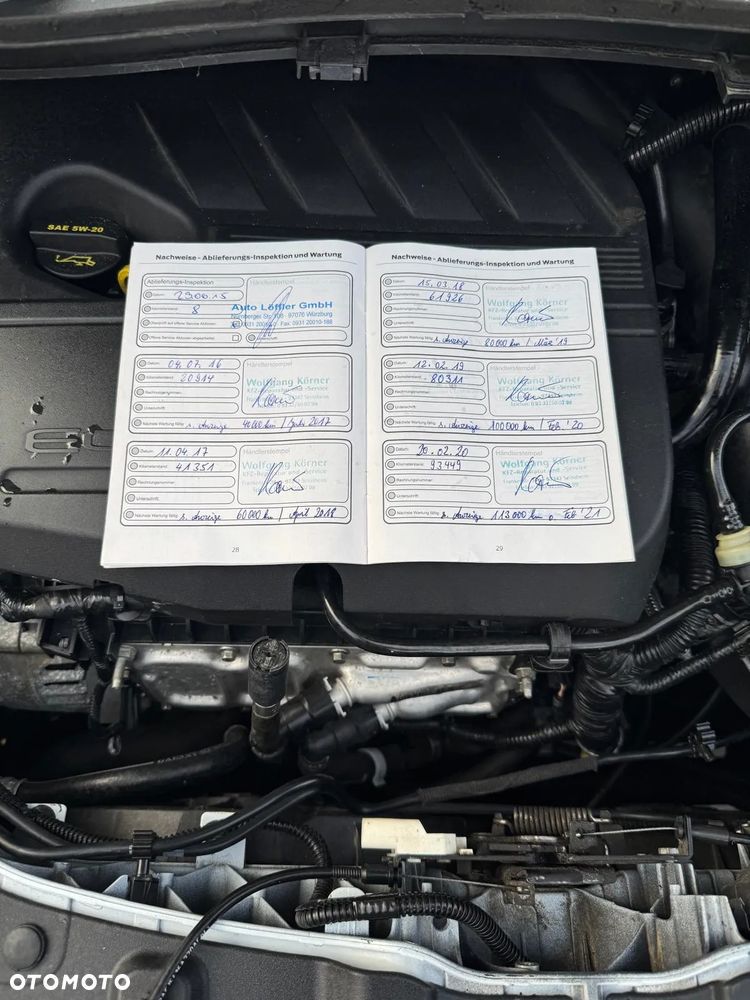 SAE 5W-20
Nachweise - Ablieferungs-Inspektion und Wartung
Ablieferungs-Inspektion
Händlerstempel
Datum:
Kilometerstand: 8
Auto Löffler GmbH
97076 Würzburg
Fax: 0931 20010-188
Datum: 04.07.16
Händlerstempel
Kilometerstand: 20914
Rechnungsnummer:
Unterschrift:
Wolfgang Körner
KFZ-Reparatur und -Service
Nächste Wartung fällig: s. Anzeige 40000 km / 2017
Datum: 11.04.17
Händlerstempel
Kilometerstand: 41351
Rechnungsnummer:
Unterschrift:
Wolfgang Körner
KFZ-Reparatur und -Service
Nächste Wartung fällig: s. Anzeige 60000 km / April 2018
28
Nachweise - Ablieferungs-Inspektion und Wartung
Datum: 15.03.18
Händlerstempel
Kilometerstand: 61926
Rechnungsnummer:
Unterschrift:
Wolfgang Körner
KFZ-Reparatur und -Service
Nächste Wartung fällig: s. Anzeige 80000 km / März '19
Datum: 12.02.19
Händlerstempel
Kilometerstand: 80311
Rechnungsnummer:
Unterschrift:
Wolfgang Körner
KFZ-Reparatur und -Service
Nächste Wartung fällig: s. Anzeige 100000 km / Feb. '20
Datum: 20.02.20
Händlerstempel
Kilometerstand: 93449
Rechnungsnummer:
Unterschrift:
Wolfgang Körner
KFZ-Reparatur und -Service
Nächste Wartung fällig: s. Anzeige 113000 km o. Feb. '21
29
OTOMOTO